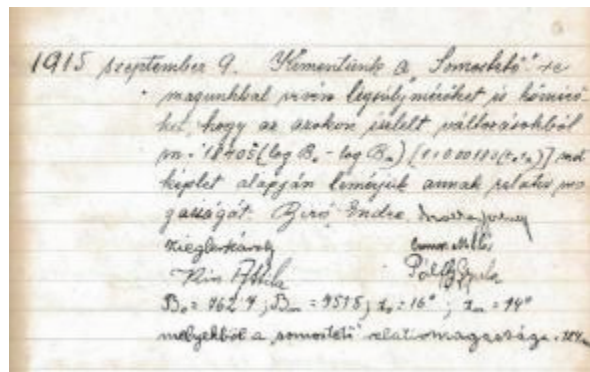 1915 szeptember 9. Kimentünk a „Somostető"-re
magunkkal vivén légsúlymérőket és hőmérő-
ket, hogy az azokon észlelt változásokból
m = 18405 (log B₀ - log Bₘ) [1+0.00183 (t₀+tₘ)]
képlet alapján lemérjük annak relatív ma-
gasságát. Biró Endre
Ziegler Károly
Kiss Attila Pálffy Gyula
B₀ = 762.7; Bₘ = 751.5; t₀ = 16°; tₘ = 14°
melyekből a „somostető" relativ magassága